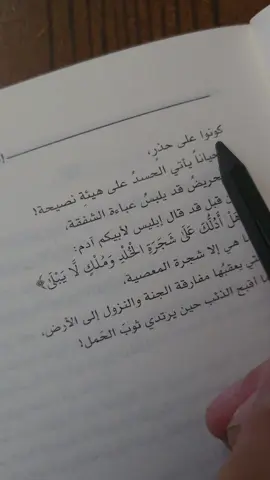 كونوا على حذرٍ،
أحياناً يأتي الحسدُ على هيئةِ نصيحة!
والتحريضُ قد يلبسُ عباءة الشفقة،
من قبل قد قال إبليس لأبيكم آدم:
﴿هَلْ أَدُلُّكَ عَلَىٰ شَجَرَةِ الْخُلْدِ وَمُلْكٍ لَّا يَبْلَىٰ﴾
وما هي إلا شجرة المعصية،
التي يعقبُها مفارقة الجنة والنزول إلى الأرض،
ما أقبح الذئب حين يرتدي ثوبَ الحَمل!